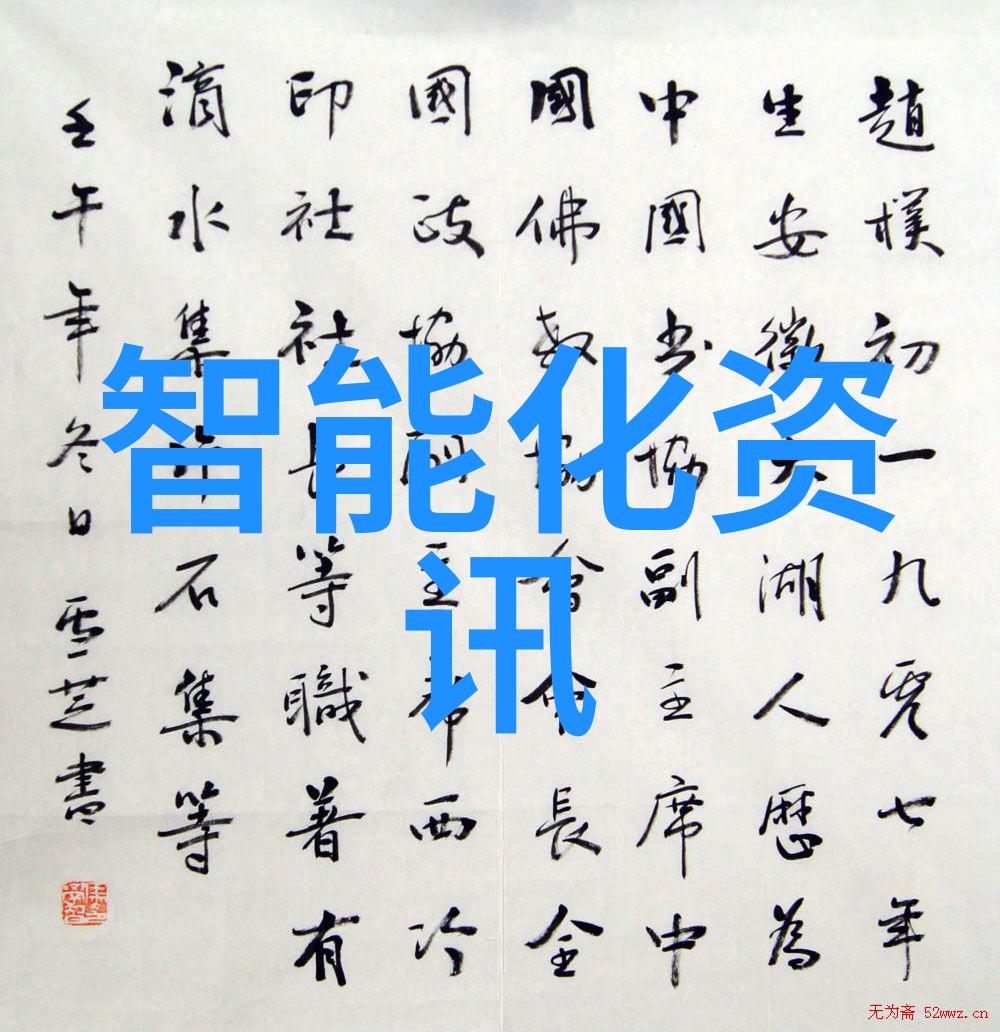 趙樸初一九零七年
生安徽太湖人歷為
中國书協副主席中
國佛教協會會長全
國政協副主席西冷
印社社長等職著有
滴水集片石集等
壬午年冬日雪芝書
智能化资
讯
无为斋 52wwz.cn